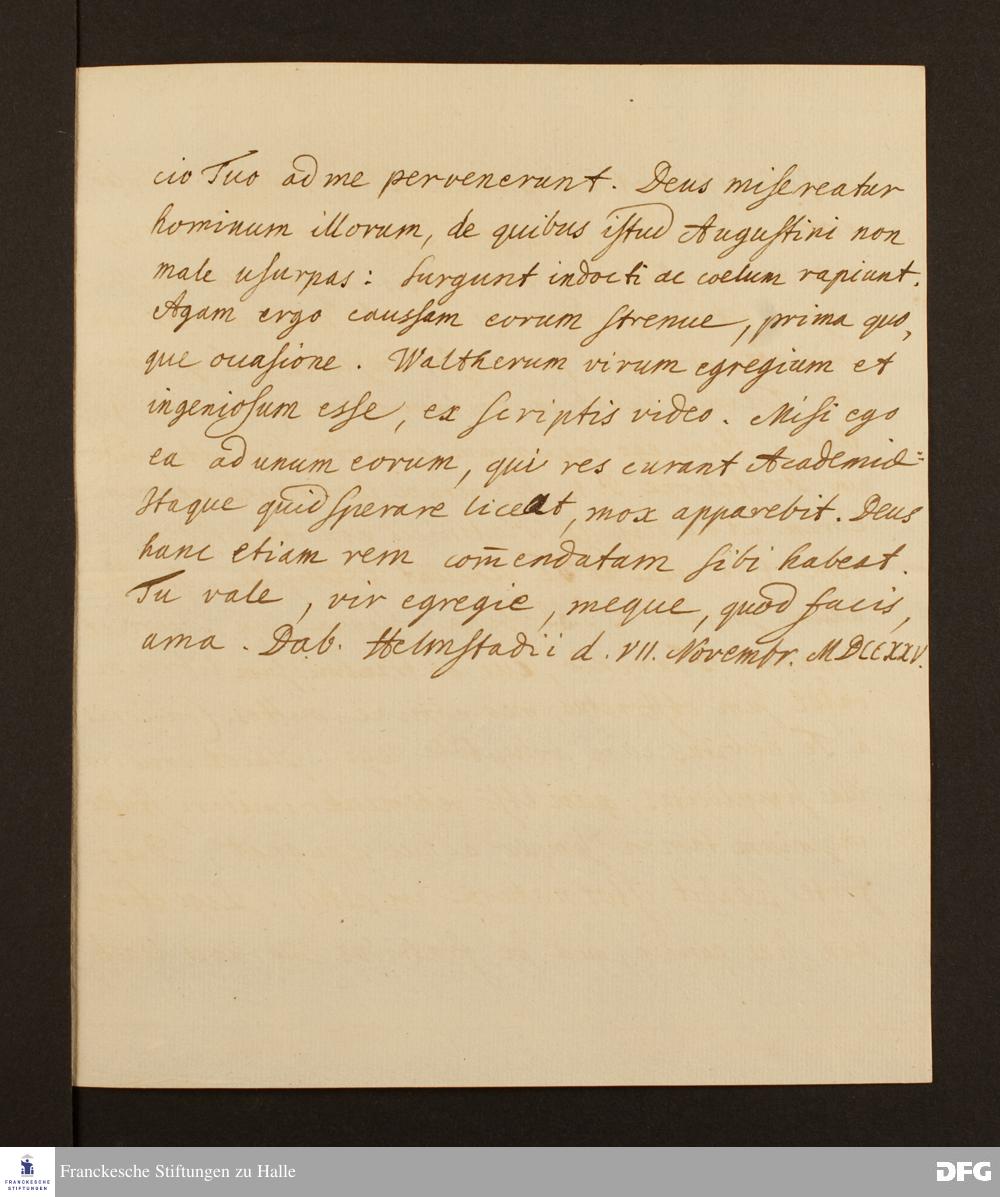 cio Tuo ad me pervenerunt. Deus misereatur
hominum illorum, de quibus istud Augustini non
male usurpas: surgunt indocti ac coelum rapiunt.
Agam ergo caussam eorum strenue, prima quo,
que occasione. Waltherum virum egregium et
ingeniosum esse, ex scriptis video. Misi ego
ea ad unum eorum, qui res curant Academiæ=
Itaque quid sperare liceat, mox apparebit. Deus
hanc etiam rem com̄endatam sibi habeat.
Tu vale, vir egregie, meque, quod facis,
ama. Dab. Helmstadii d. VII. Novembr. MDCCXXV.
FRANCKESCHE
STIFTUNGEN
Franckesche Stiftungen zu Halle
DFG